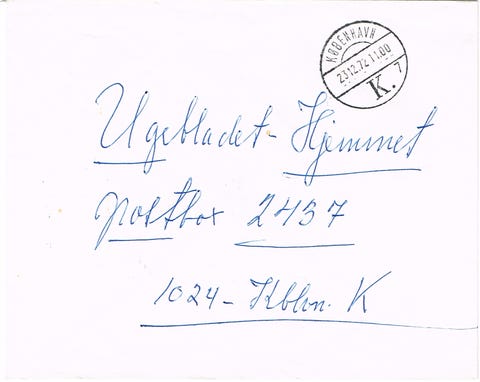 KØBENHAVN
23.12.72 11.00
K. 7
Ugebladet - Hjemmet
postbox 2437
1024 - Kbhvn. K